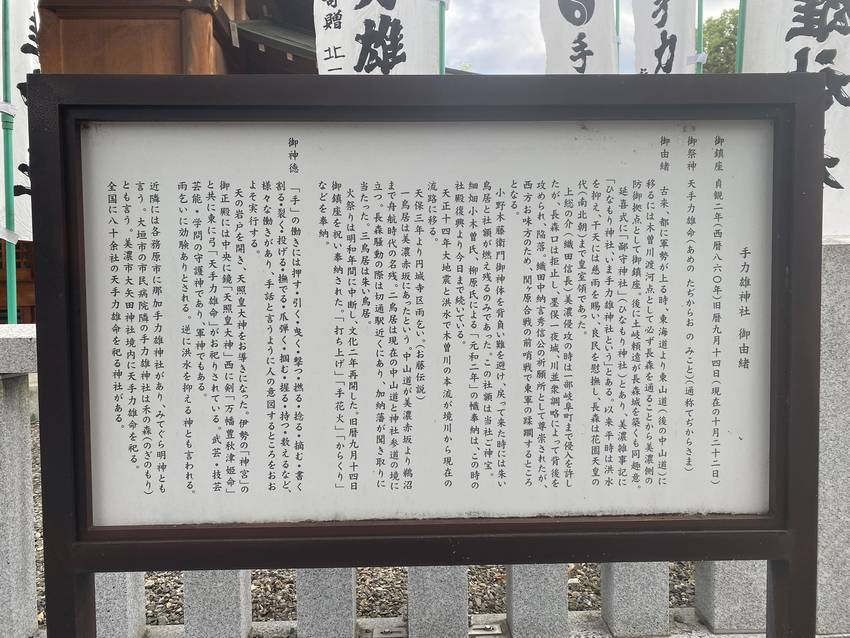 手力雄神社 御由緒
御鎮座 貞観二年(西暦八六〇年)旧暦九月十四日(現在の十月二十二日)
御祭神 天手力雄命(あめの たぢからお の みこと)(通称てぢからさま)
御由緒 古来、都に軍勢が上る時、東海道より東山道(後の中山道)に
移るには木曽川渡河点として必ず長森を通ることから美濃側の
防御拠点として御鎮座。後に土岐頼遠が長森城を築くも同趣意。
延喜式に「鄙守神社」(ひなもり神社)とあり、美濃雑事記に
「ひなもり神社、いま手力雄神社という」とある。以来平時は洪水
を抑え、干天には慈雨を賜い、良民を慰撫し、長森は花園天皇の
代(南北朝)まで皇室領であった。
上総の介(織田信長)美濃侵攻の時は一部岐阜町まで侵入を許し
たが、長森口は拒止し、墨俣一夜城、川並衆調略によって背後を
攻められ、陥落。織田中納言秀信公の祈願所として尊崇されたが、
西方お味方のため、関ヶ原合戦の前哨戦で東軍の蹂躙するところ
となる。
小野木藤衛門御神体を背負い難を避け、戻って来た時には朱い
鳥居と社領が燃え残るのみであった。この社額は当社ご神宝。
細畑小木曽氏、柳原氏による「元和二年」の幟奉納は、この時の
社殿復興より今日まで続いている。
天正十四年大地震と洪水で木曽川の本流が境川から現在の
流路に移る。
天保三年より円城寺区雨乞い。(お藤伝説)
一鳥居は美濃赤坂にあったという。中山道が美濃赤坂より鵜沼
まで舟航時代の名残。二鳥居は現在の中山道と神社参道の境に
立つ。長森騒動の際は切通駅近くにあり、加納藩が聞き取りに
当たった。三鳥居は朱い鳥居。
火祭りは明和年間に中断し、文化二年再開した。旧暦九月十四日
御鎮座を祝い奉納された。「打ち上げ」「手花火」「からくり」
などを奉納。
御神徳 「手」の働きには押す・引く・曳く・撃つ・撚る・捻る・摘む・書く
割る・裂く・投げる・撫でる・爪弾く・掴む・握る・持つ・教えるなど、
様々な働きがあり、手話と言うように人の意図するところをおお
よそ実行する。
天の岩戸を開き、天照皇大神をお導きになった。伊勢の「神宮」の
御正殿には中央に鏡「天照皇大神」西に剣「万幡豊秋津姫命」
と共に東に弓「天手力雄命」がお祀りされている。武芸・技芸
芸能・学問の守護神であり、軍神でもある。
雨乞いに効験ありとされる。逆に洪水を抑える神とも言われる。
近隣には各務原市に那加手力雄神社があり、みてぐら明神とも
言う。大垣市の市民病院隣の手力雄神社は禾の森(のぎのもり)
とも言う。美濃市大矢田神社境内に天手力雄命を祀る。
全国に八十余社の天手力雄命を祀る神社がある。
寄贈 北一
力雄
手
手力